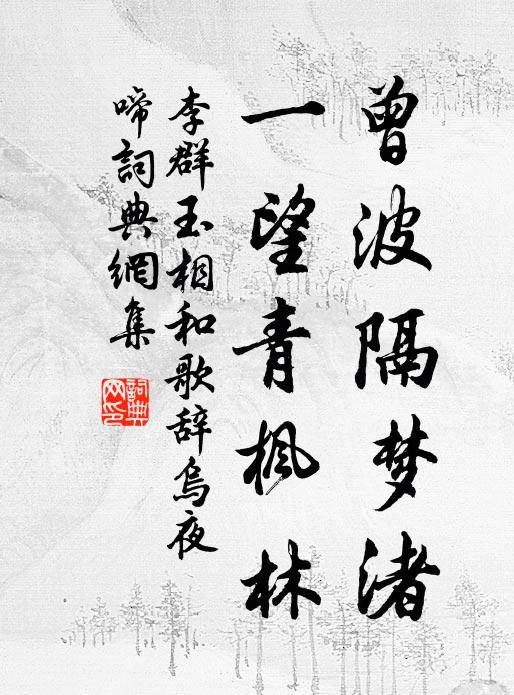 曾波隔梦渚
一望青枫林
李群玉相和歌辞乌夜
啼詞典網集
詞典
网印